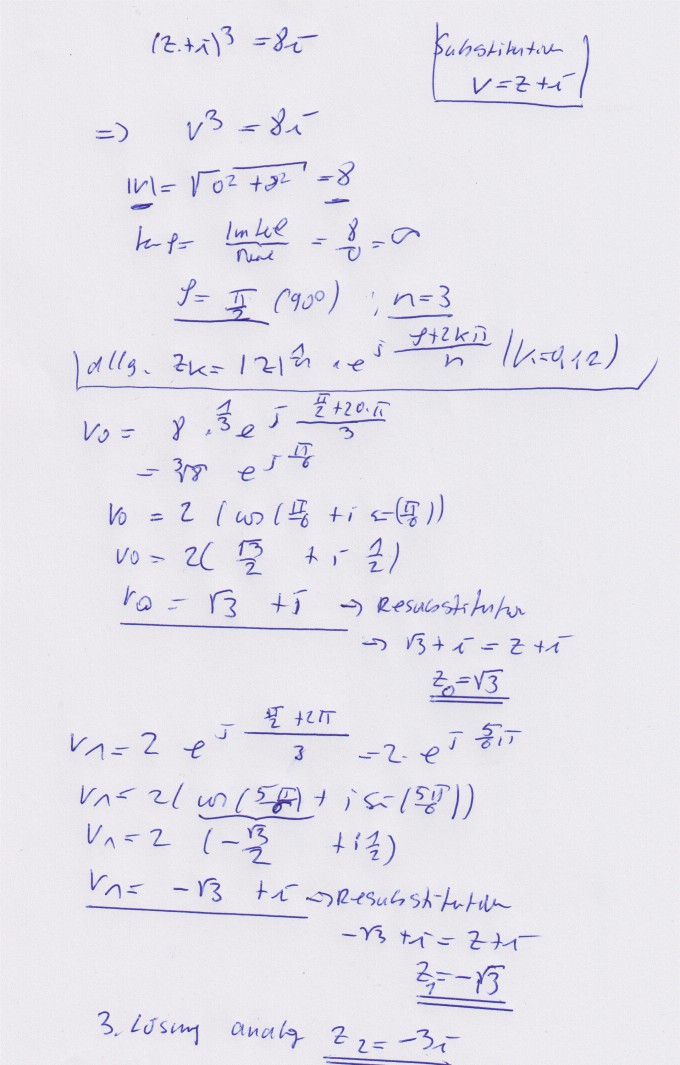 (z+i)³ = 8i
Substitution
v = z+i
=> v³ = 8i
|v| = √(0² + 8²) = 8
tan φ = Imteil / Realteil = 8/0 = ∞
φ = π/2 (90°) ; n=3
allg. zk = |z|^(1/n) · e^(j (φ+2kπ)/n) (k=0,1,2)
v0 = 8 ·^(1/3) e^(j (π/2 + 2·0·π)/3)
= ³√8 e^(j π/6)
v0 = 2 (cos(π/6 + i sin(π/6))
v0 = 2( √3/2 + i 1/2)
v0 = √3 + i → Resubstitution
→ √3 + i = z + i
z0 = √3
v1 = 2 e^(j (π/2 + 2π)/3) = 2 · e^(j 5/6 π)
v1 = 2( cos(5π/6) + i sin(5π/6))
v1 = 2 (-√3/2 + i 1/2)
v1 = -√3 + i → Resubstitution
-√3 + i = z + i
z1 = -√3
3. Lösung analog z2 = -3i